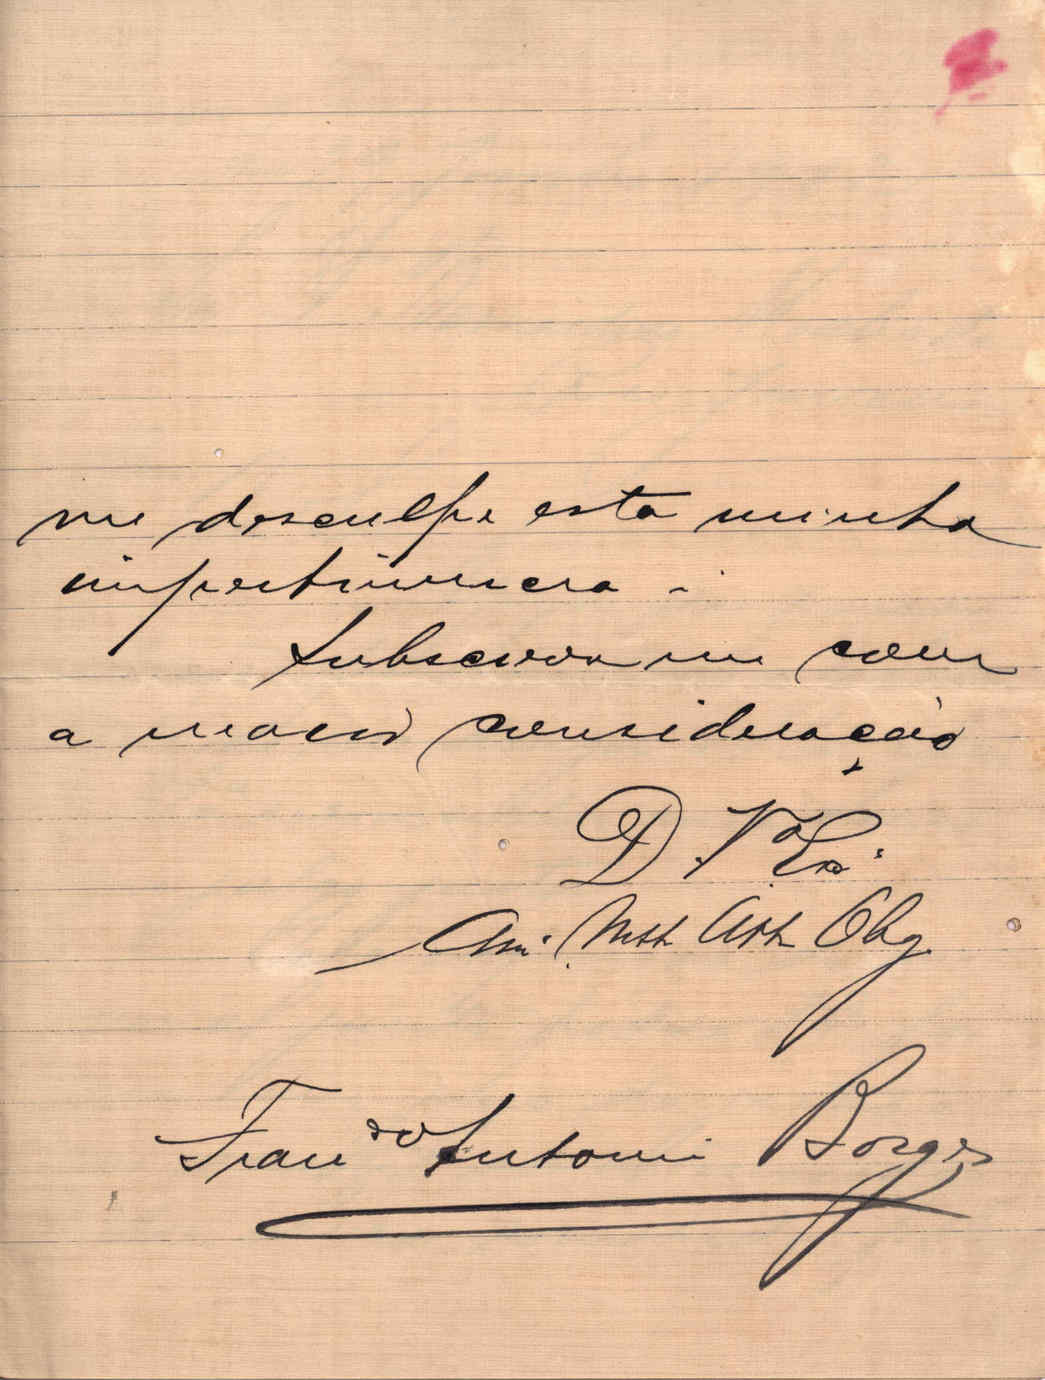 me desculpe esta minha
impertinencia.
Subscrevo me com
a maior consideração
D. Vª Exª.
Amº. Attº Obg.
Franco Antonio Borges